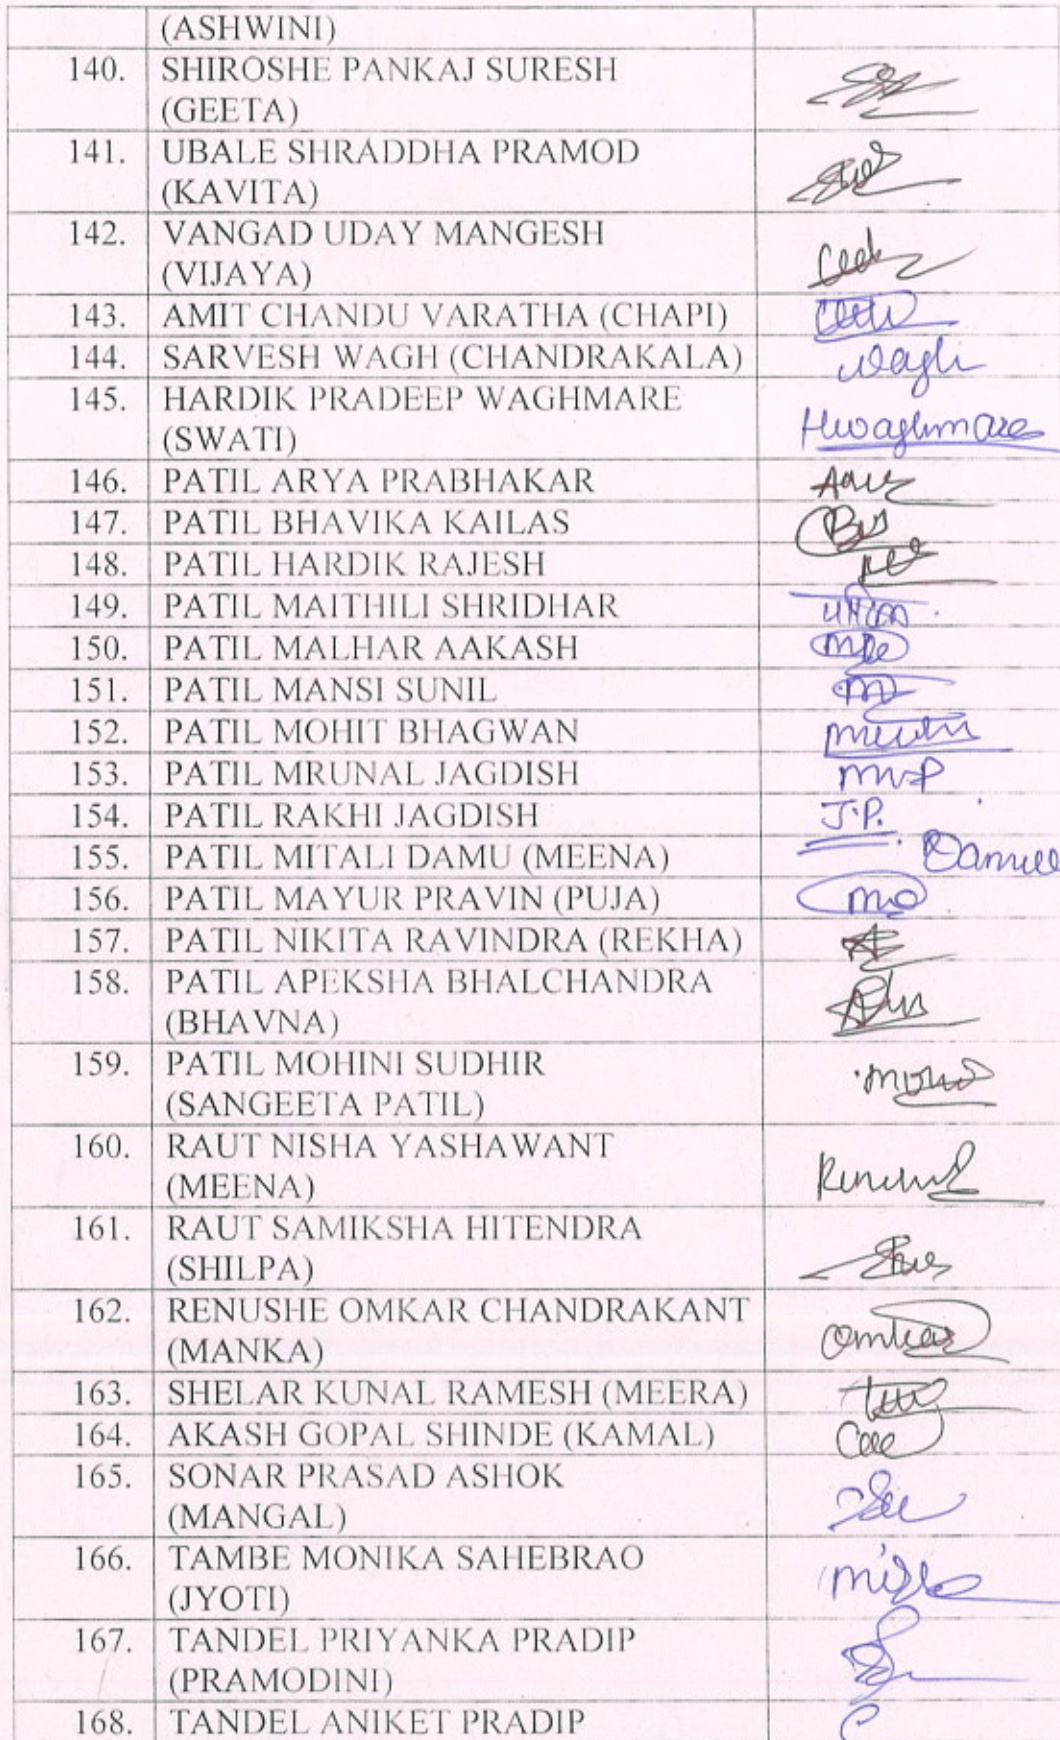 (ASHWINI)
140. SHIROSHE PANKAJ SURESH
(GEETA)
141. UBALE SHRADDHA PRAMOD
(KAVITA)
142. VANGAD UDAY MANGESH
(VIJAYA)
143. AMIT CHANDU VARATHA (CHAPI)
144. SARVESH WAGH (CHANDRAKALA) Wagh
145. HARDIK PRADEEP WAGHMARE
(SWATI) Hwaghmare
146. PATIL ARYA PRABHAKAR
147. PATIL BHAVIKA KAILAS
148. PATIL HARDIK RAJESH
149. PATIL MAITHILI SHRIDHAR
150. PATIL MALHAR AAKASH
151. PATIL MANSI SUNIL
152. PATIL MOHIT BHAGWAN
153. PATIL MRUNAL JAGDISH
154. PATIL RAKHI JAGDISH J.P.
155. PATIL MITALI DAMU (MEENA)
156. PATIL MAYUR PRAVIN (PUJA)
157. PATIL NIKITA RAVINDRA (REKHA)
158. PATIL APEKSHA BHALCHANDRA
(BHAVNA)
159. PATIL MOHINI SUDHIR
(SANGEETA PATIL)
160. RAUT NISHA YASHAWANT
(MEENA)
161. RAUT SAMIKSHA HITENDRA
(SHILPA)
162. RENUSHE OMKAR CHANDRAKANT
(MANKA) Omkar
163. SHELAR KUNAL RAMESH (MEERA)
164. AKASH GOPAL SHINDE (KAMAL)
165. SONAR PRASAD ASHOK
(MANGAL)
166. TAMBE MONIKA SAHEBRAO
(JYOTI)
167. TANDEL PRIYANKA PRADIP
(PRAMODINI)
168. TANDEL ANIKET PRADIP